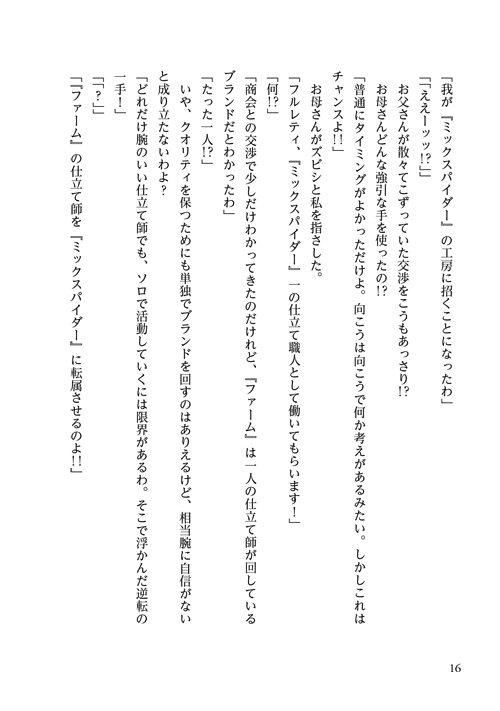 「我が『ミックスパイダー』の工房に招くことになったわ」
「「ええーッッ!?」」
お父さんが散々てこずっていた交渉をこうもあっさり!?
お母さんどんな強引な手を使ったの!?
「普通にタイミングがよかっただけよ。向こうは向こうで何か考えがあるみたい。しかしこれは
チャンスよ!!」
お母さんがズビシと私を指さした。
「フルレティ、『ミックスパイダー』一の仕立て職人として働いてもらいます!」
「何!?」
「商会との交渉で少しだけわかってきたのだけれど、『ファーム』は一人の仕立て師が回している
ブランドだとわかったわ」
「たった一人!?」
いや、クオリティを保つためにも単独でブランドを回すのはありえるけど、相当腕に自信がない
と成り立たないわよ?
「どれだけ腕のいい仕立て師でも、ソロで活動していくには限界があるわ。そこで浮かんだ逆転の
一手!」
「「?」」
「『ファーム』の仕立て師を『ミックスパイダー』に転属させるのよ!!」
16